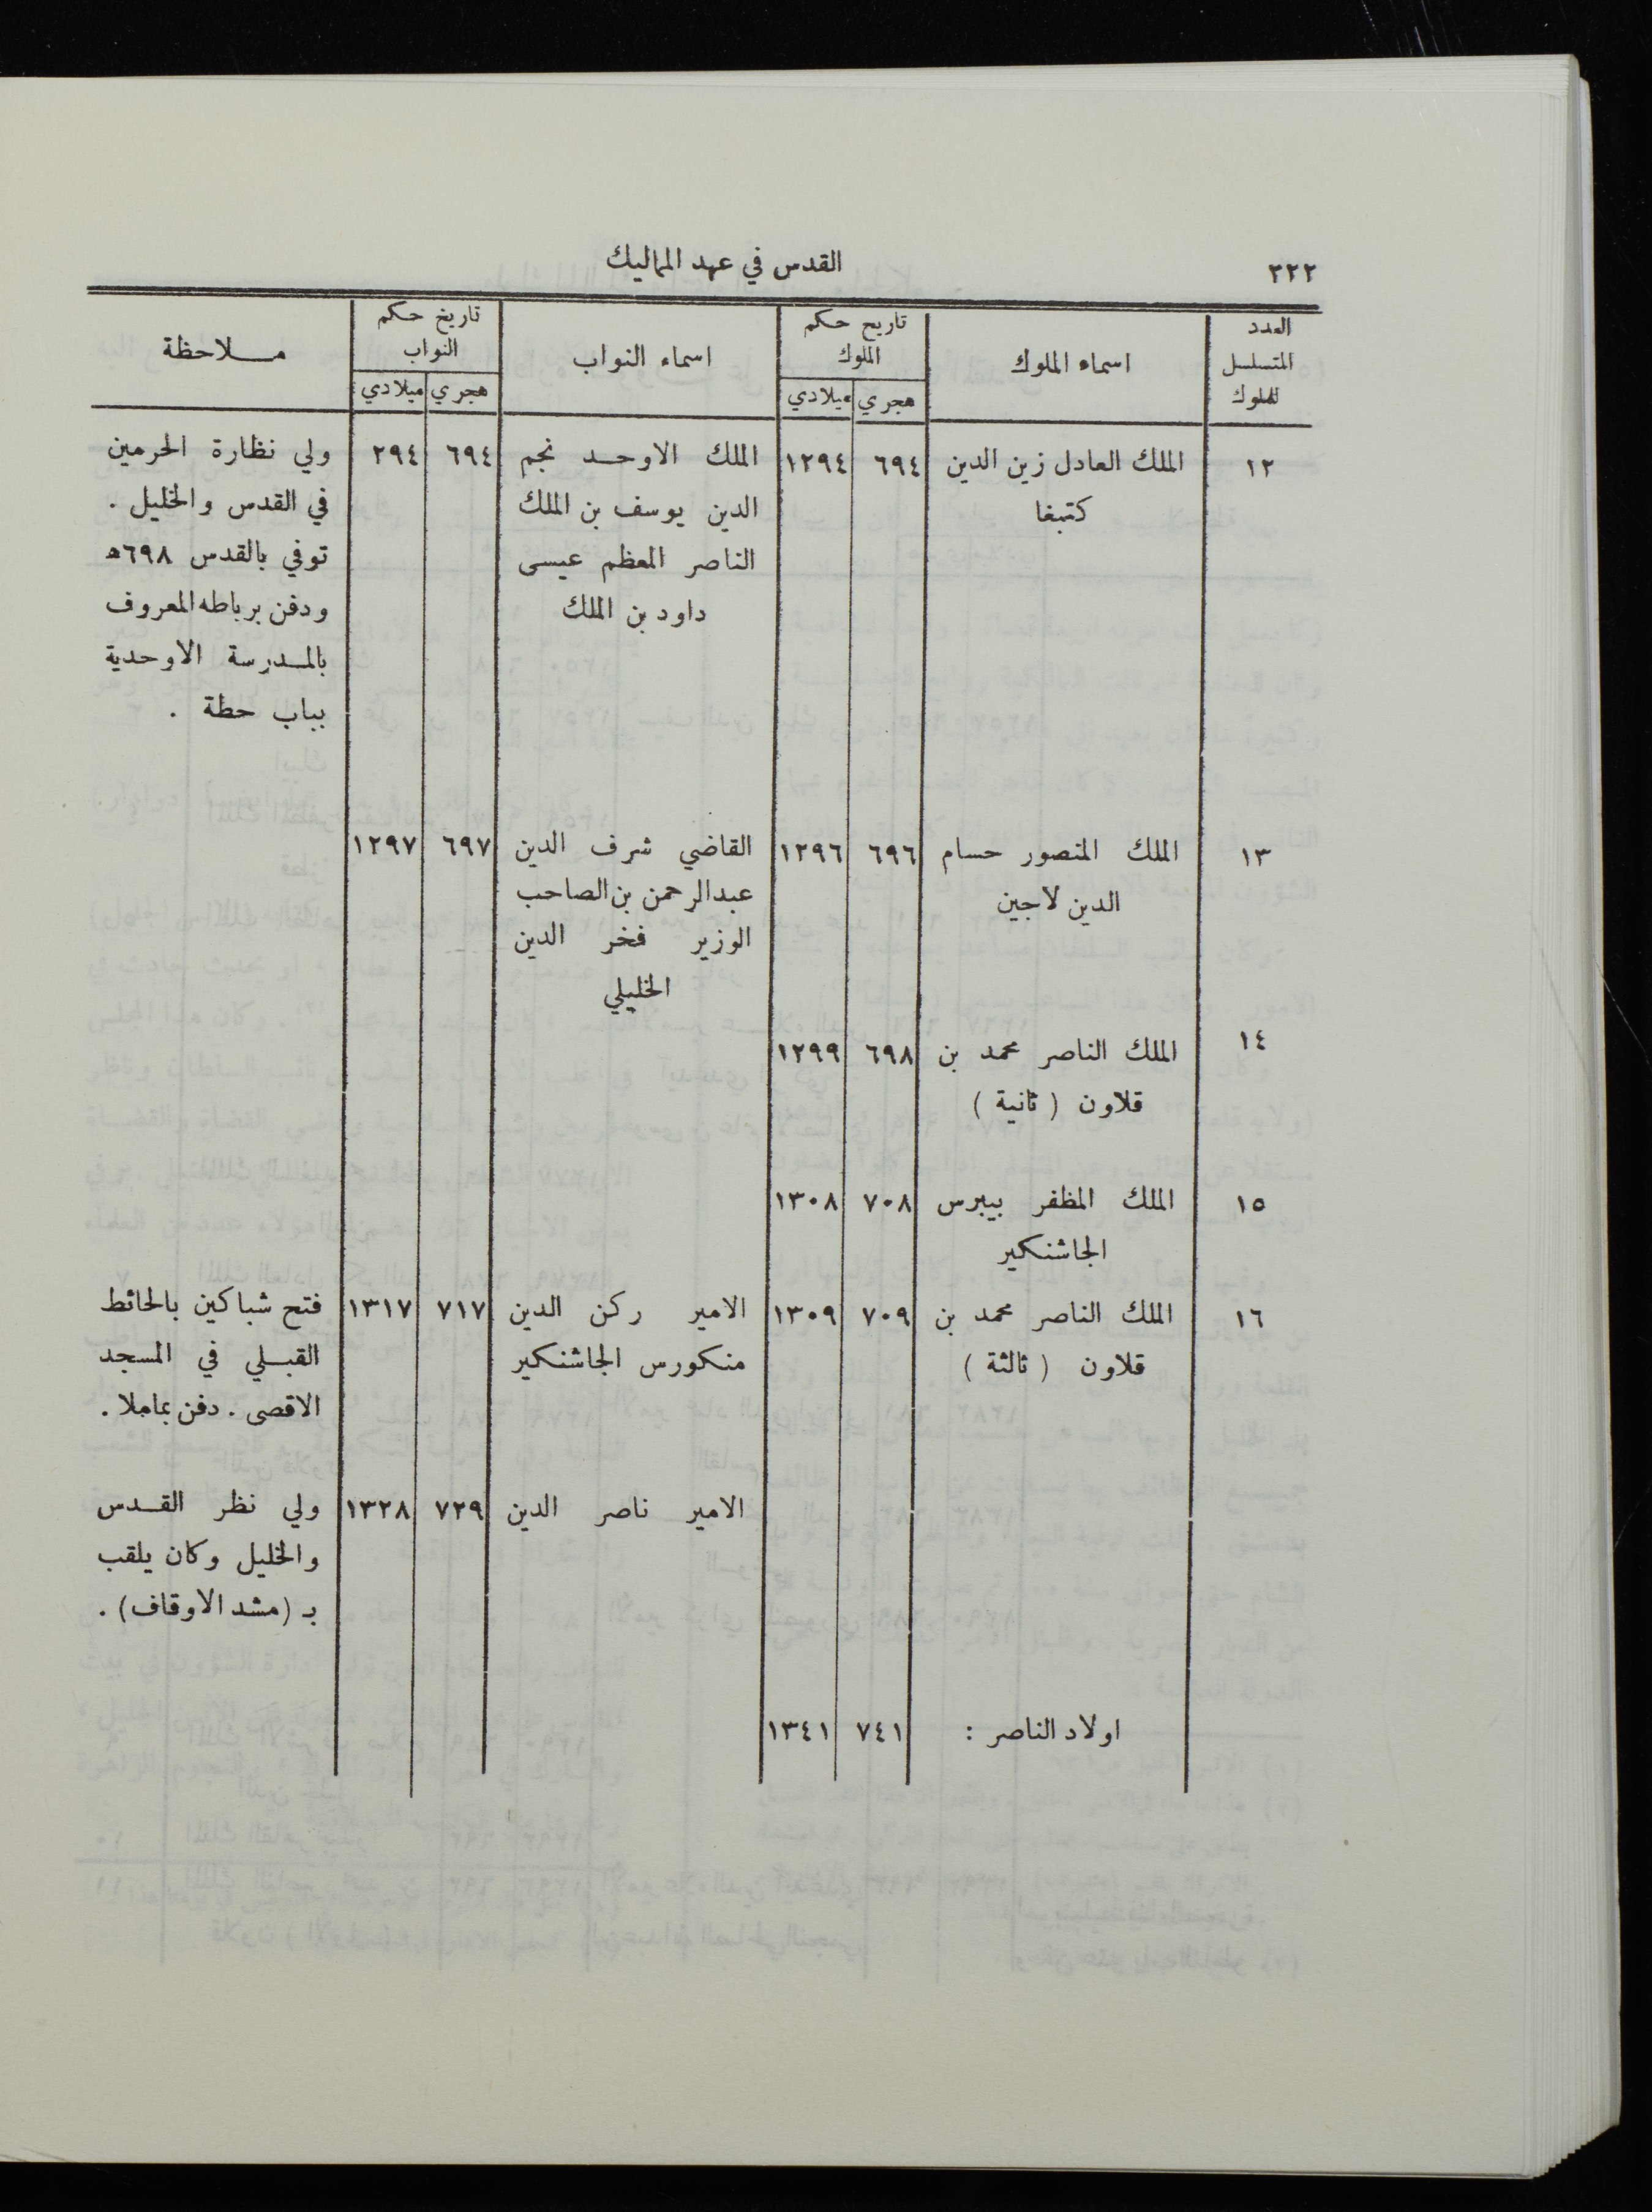 ٢٢٢
القدس في عهد المماليك
العدد المتسلسل للملوك | اسماء الملوك | تاريخ حكم الملوك | اسماء النواب | تاريخ حكم النواب | ملاحظة
هجري | ميلادي | هجري | ميلادي
١٢ | الملك العادل زين الدين | ٦٩٤ | ١٢٩٤ | الملك الاوحد نجم | ٦٩٤ | ٢٩٤ | ولي نظارة الحرمين
كتبغا | الدين يوسف بن الملك | في القدس والخليل .
الناصر المعظم عيسى | توفي بالقدس ٦٩٨ه
داود بن الملك | ودفن برباطه المعروف
بالمدرسة الاوحدية
بباب حطة .
١٣ | الملك المنصور حسام | ٦٩٦ | ١٢٩٦ | القاضي شرف الدين | ٦٩٧ | ١٢٩٧
الدين لاجين | عبدالرحمن بن الصاحب
الوزير فخر الدين
الخليلي
١٤ | الملك الناصر محمد بن | ٦٩٨ | ١٢٩٩
قلاون ( ثانية )
١٥ | الملك المظفر بيبرس | ٧٠٨ | ١٣٠٨
الجاشنكير
١٦ | الملك الناصر محمد بن | ٧٠٩ | ١٣٠٩ | الامير ركن الدين | ٧١٧ | ١٣١٧ | فتح شباكين بالحائط
قلاون ( ثالثة ) | منكورس الجاشنكير | القبلي في المسجد
الاقصى . دفن بماملا .
الامير ناصر الدين | ٧٢٩ | ١٣٢٨ | ولي نظر القدس
والخليل وكان يلقب
بـ (مشد الاوقاف) .
اولاد الناصر : | ٧٤١ | ١٣٤١